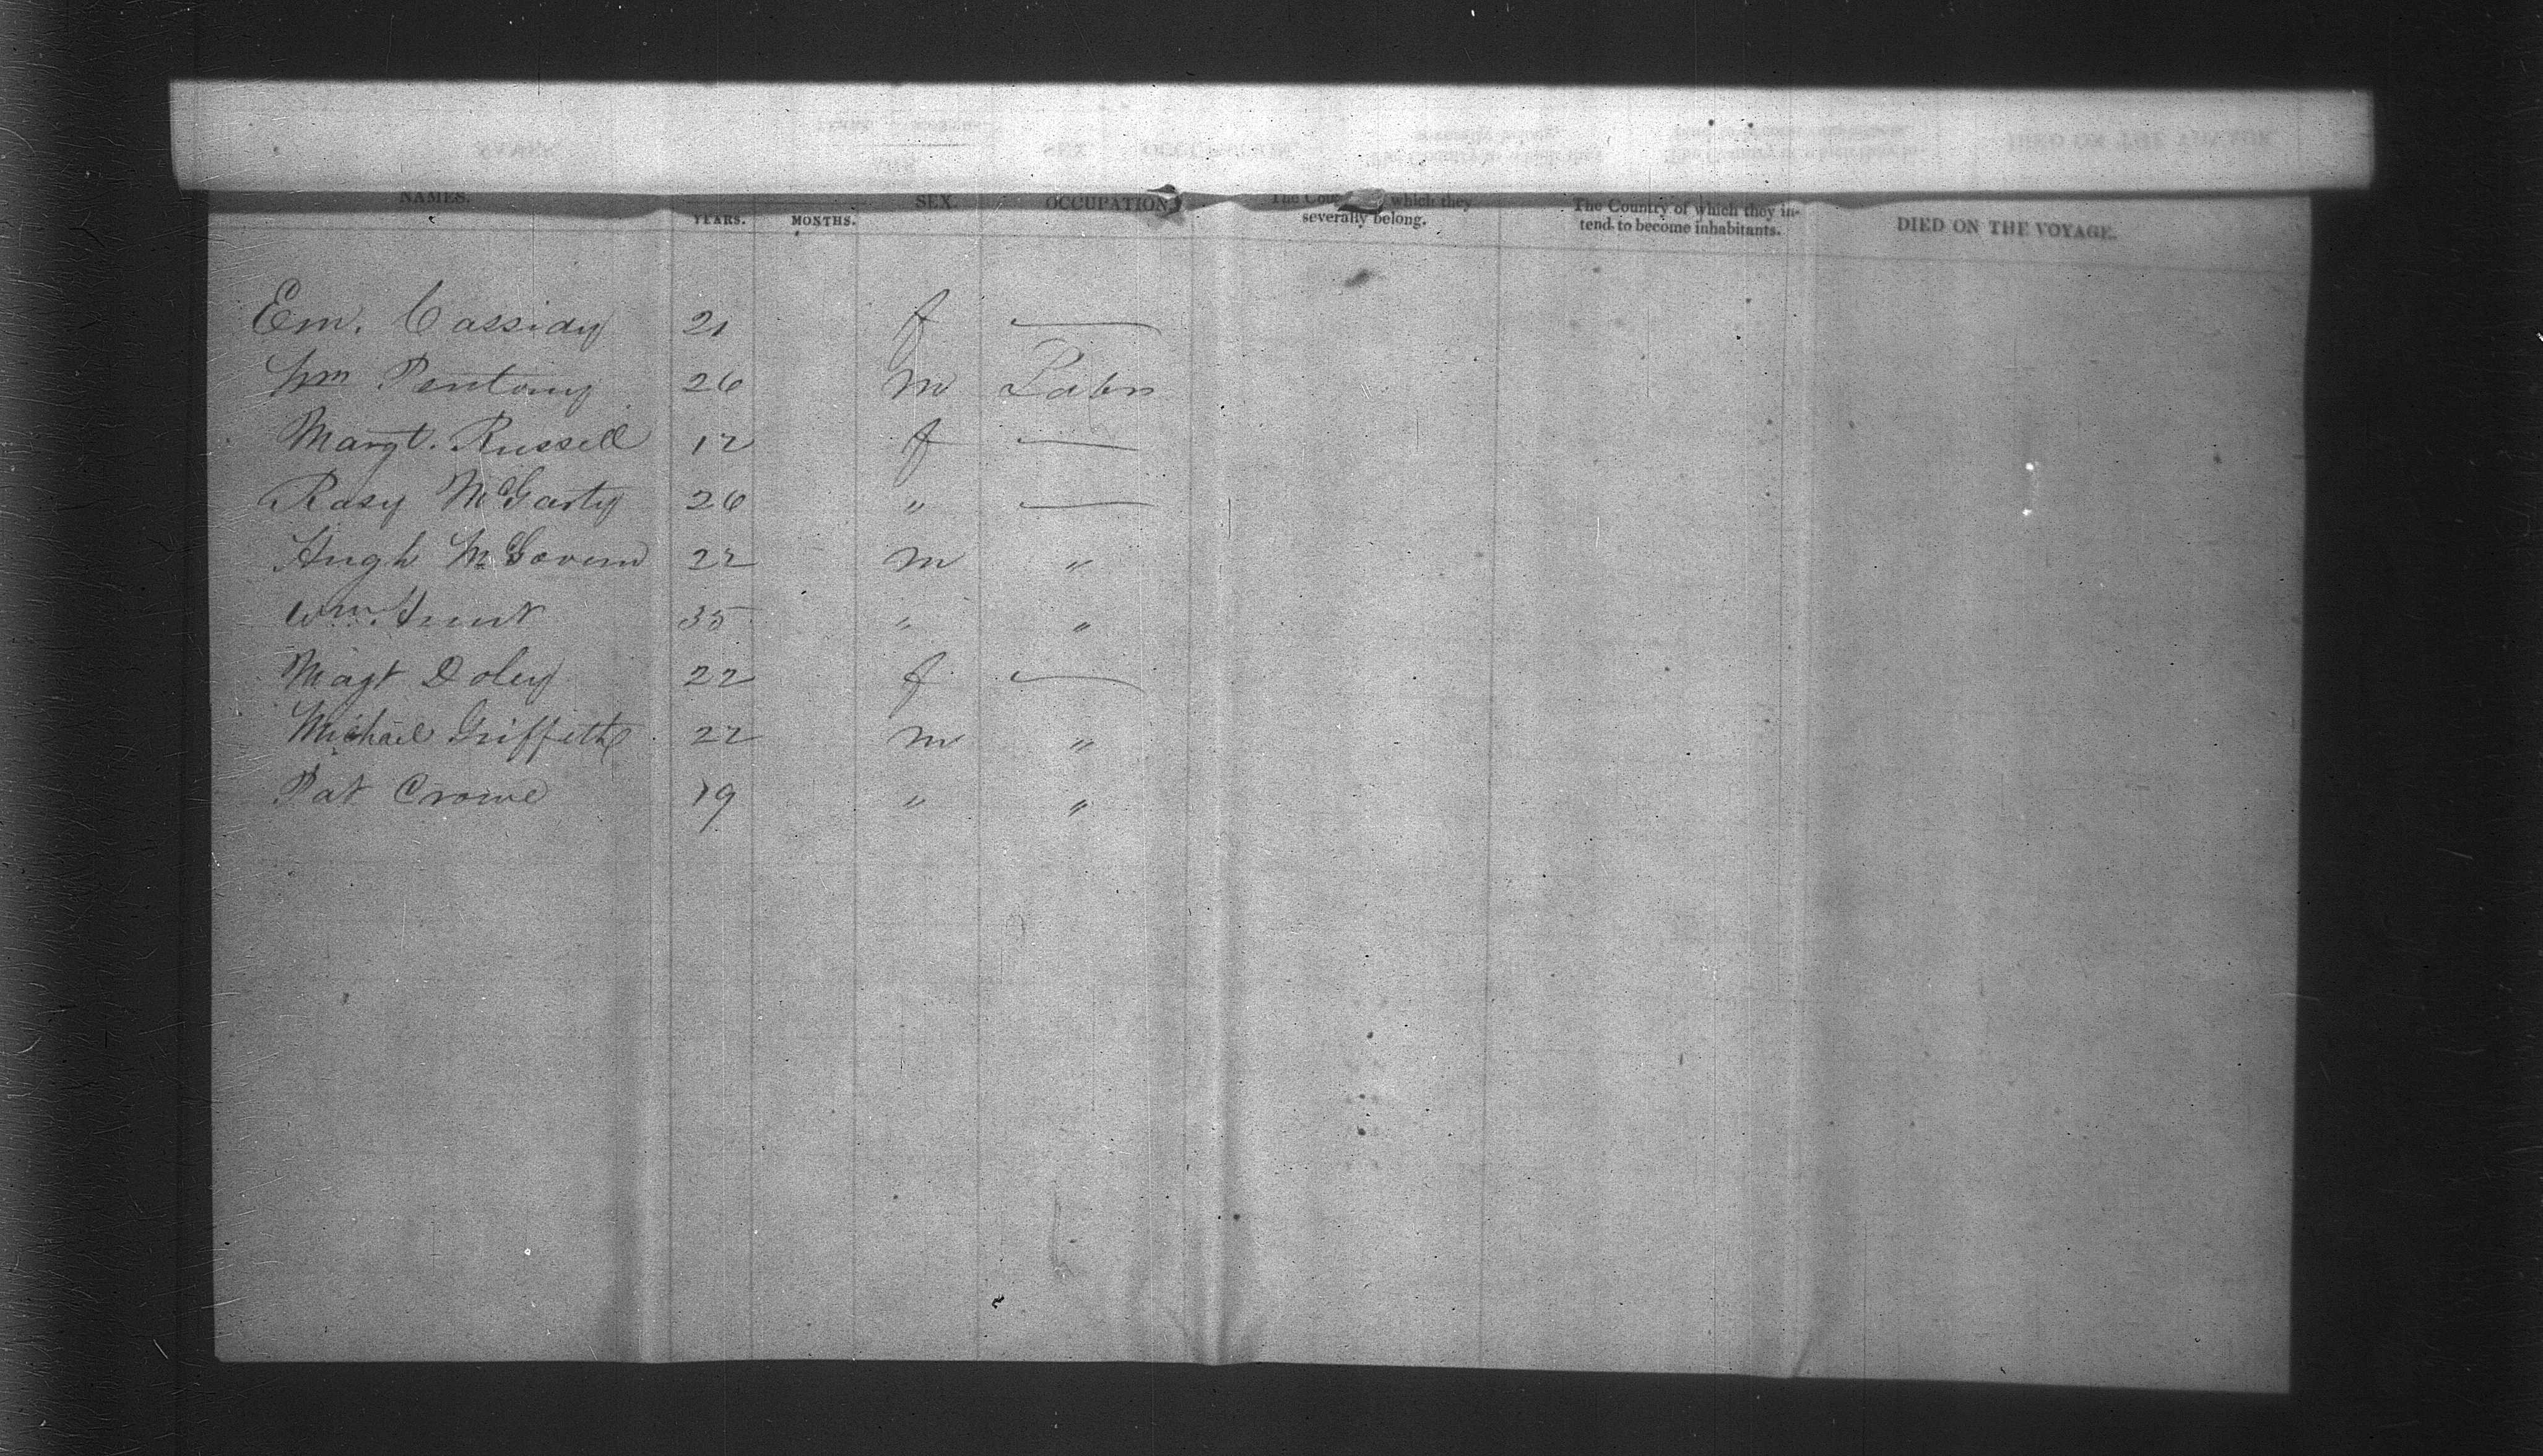 NAMES. YEARS. MONTHS. SEX. OCCUPATION The Cou which they severally belong. The Country of which they in-tend to become inhabitants. DIED ON THE VOYAGE.
Em. Cassidy 21 f —
Wm Pentony 26 m Labr
Margt. Russell 12 f —
Rosy McGarty 26 " —
Hugh McGovern 22 m "
Wm. Hunt 35 " "
Magt Doley 22 f —
Michael Griffeth 22 m "
Pat Crowe 19 " "